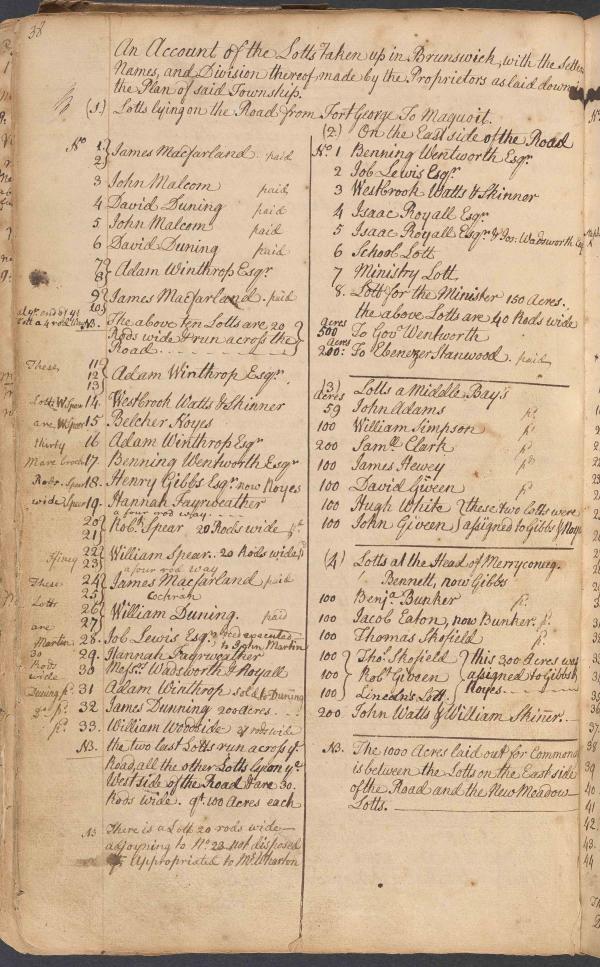 38
An Account of the Lotts taken up in Brunswick, with the Settlers
Names, and Division thereof made by the Proprietors as laid down in
the Plan of said Township.
(1.) Lotts lying on the Road from Fort George To Maquoit.
No 1
2 } James Macfarland. paid
3 John Malcom paid
4 David Duning paid
5 John Malcom paid
6 David Duning paid
7
8 } Adam Winthrop Esqr
9
10 } James Macfarland. paid
at ye end of ye
Lott a 4 rod way
NB. The above ten Lotts are 20
Rods wide & run across the
Road
These 11
12
13 } Adam Winthrop Esqr.
Lotts W. Spear 14. Westbrook Watts & Skinner
are W. Spear 15 Belcher Noyes
thirty 16 Adam Winthrop Esqr
17. Benning Wentworth Esqr
Robt. Spear 18. Henry Gibbs Esqr. now Noyes
wide Spear 19. Hannah Fayrweather
a four rod way
20
21 } Robt. Spear 20 Rods wide pd
22
23 } William Spear.. 20 Rods wide pd
a four rod way
These 24
25 } James Macfarland paid
Cochran
Lotts 26
are 27 } William Duning. paid
Martin 28. Job Lewis Esqr. Deed executed
to John Martin
30 29. Hannah Fayrweather
Rods 30 Messrs. Wadsworth & Royall
wide
Duning pd. 31 Adam Winthrop sold to Duning
pd. 32 James Dunning 200 acres.
pd. 33. William Woodside 2y rods wide
NB. the two last Lotts run across ye
Road, all the other Lotts lye on ye
West side of the Road & are 30.
Rods wide. qt. 100 Acres each
NB There is a Lott 20 rods wide
adjoyning to No. 23 not disposed
of Appropriated to Mr. Wharton
(2) On the East side of the Road
No. 1 Benning Wentworth Esqr.
2 Job Lewis Esqr.
3 Westbrook Watts & Skinnor
4 Isaac Royall Esqr.
5 Isaac Royall Esqr. & Jos: Wadsworth Esq
6 School Lott
7 Ministry Lott
8. Lott for the Minister 150 Acres.
the above Lotts are 40 Rods wide
Acres
500 To Govr. Wentworth
Acres
200: To Ebenezer Stanwood. paid
(3) Lotts a Middle Bay's
Acres
59 John Adams pd.
100 William Simpson pd.
200 Samll. Clark pd.
100 James Hewey pd
100 David Giveen pd
100 Hugh White
100 John Giveen } these two lotts were
assigned to Gibbs & Noyes
(4) Lotts at the Head of Merryconeg.
Bennett, now Gibbs
100 Benja. Bunker pd.
100 Jacob Eaton, now Bunker. pd.
100 Thomas Skofield pd.
100 Tho: Skofield
100 Robt. Giveen
100 Lincoln's Lott. } this 300 Acres was
assigned to Gibbs &
Noyes.
200 John Watts & William Skiner.
NB. The 1000 Acres laid out for Commons
is between the Lotts on the East side
of the Road and the New Meadow
Lotts.